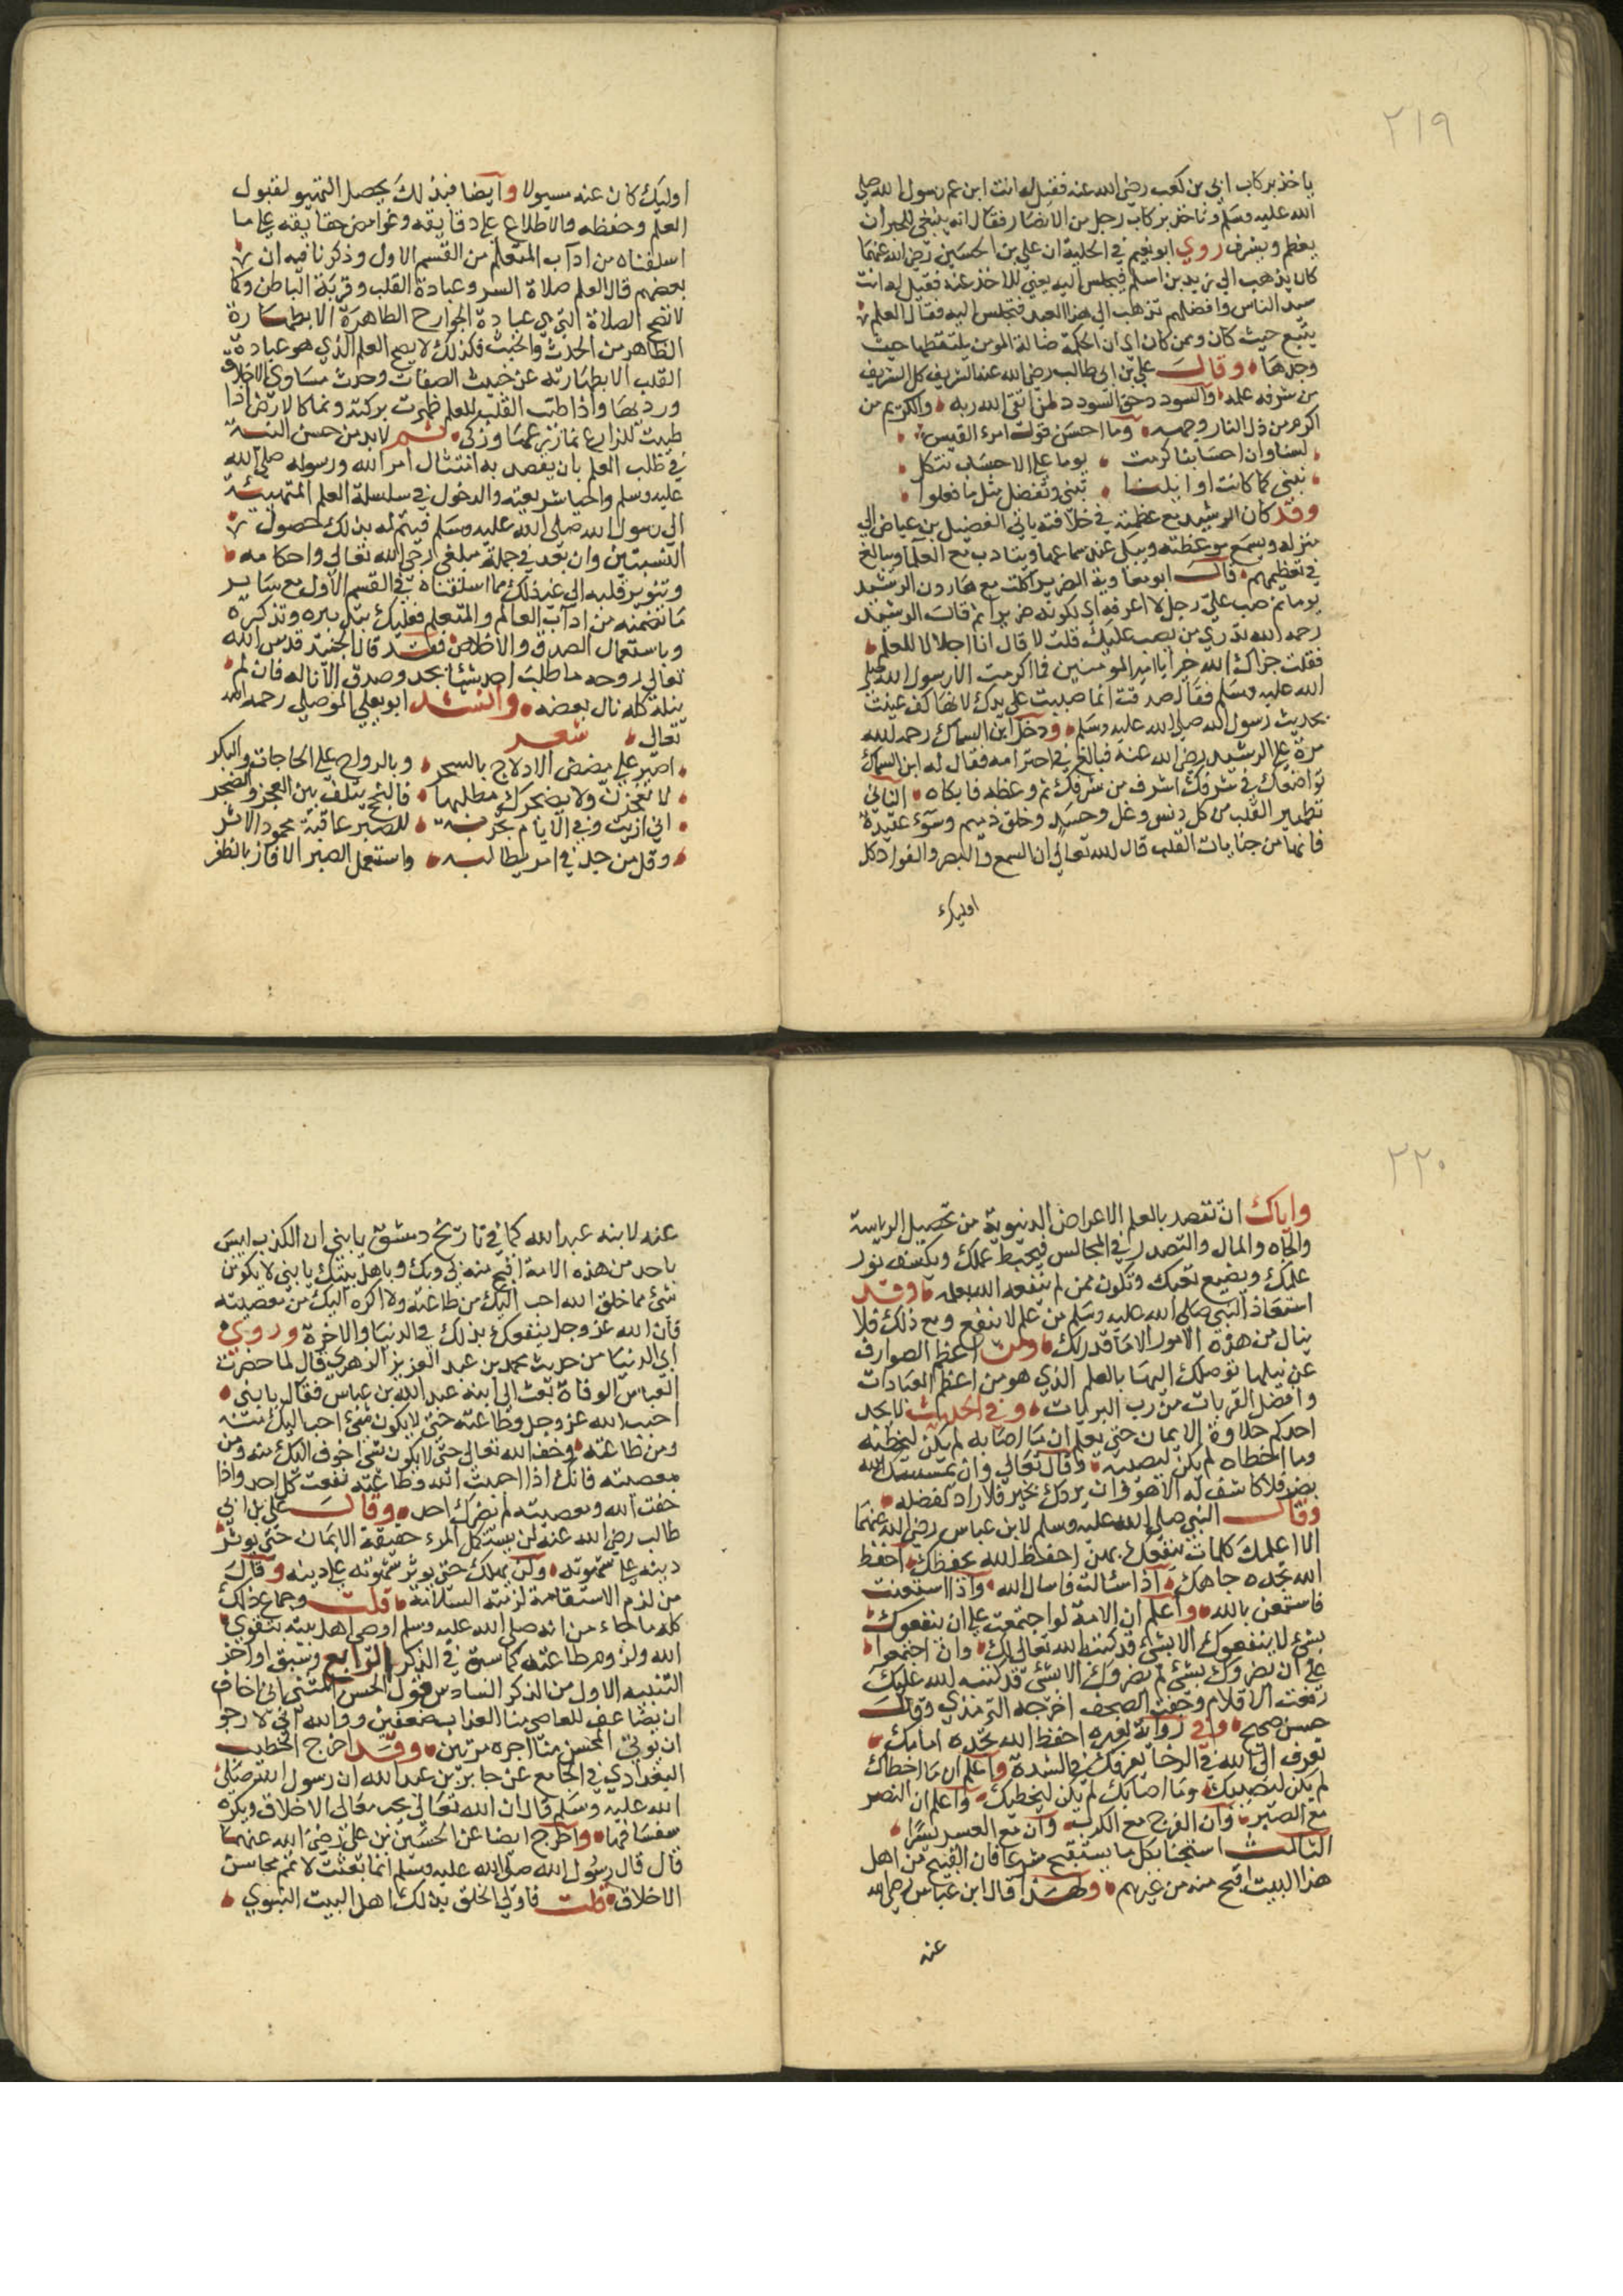 ٢١٩
ياخذ بركاب ابي بن كعب رضي الله عنه فقيل له انت ابن عم رسول الله صلي
الله عليه وسلم وتاخذ بركاب رجل من الانصار فقال انه ينبغي للحبر ان
يعظم ويشرف روي ابو نعيم في الحلية ان علي بن الحسين رضي الله عنهما
كان يذهب الي زيد بن اسلم فيجلس اليه يعني للاخذ عنه فقيل له انت
سيد الناس وافضلهم تذهب الي هذا العبد فتجلس اليه فقال العلم
يتبع حيث كان وممن كان اي ان الحكمة ضالة المومن يلتقطها حيث
وجدها وقال علي بن ابي طالب رضي الله عنه الشريف كل الشريف
من شرفه علمه والسودد حق السودد لمن اتقي الله ربه والكريم من
اكرم من ذل النار وجهه وما احسن قول امرء القيس
لسنا وان احسابنا كرمت يوما علي الاحساب نتكل
نبني كما كانت اوايلنا تبني ونفضل مثل ما فعلوا
وقد كان الرشيد مع عظمته في خلافته ياتي الفضيل بن عياض الي
منزله ويسمع موعظته ويبكي عند سماعها ويتادب مع العلما ويبالغ
في تعظيمهم قال ابو معاوية الضرير اكلت مع هارون الرشيد
يوما ثم صب علي رجل لا اعرفه اي لكونه ضريرا ثم قال الرشيد
رحمه الله تدري من يصب عليك قلت لا قال انا اجلالا للعلم
فقلت جزاك الله خيرا يا امير المومنين فما اكرمت الا رسول الله صلي
الله عليه وسلم فقال صدقت انما صببت علي يدك لانها كف عنيت
بحديث رسول الله صلي الله عليه وسلم ودخل ابن السماك رحمه الله
مرة علي الرشيد رضي الله عنه فبالغ في احترامه فقال له ابن السماك
تواضعك في شرفك اشرف من شرفك ثم وعظه فابكاه الثاني
تطهير القلب من كل دنس وغل وحسد وخلق ذميم وسوء عقيدة
فانها من جنايات القلب قال الله تعالي ان السمع والبصر والفواد كل
اوليك
اوليك كان عنه مسيولا وايضا فبذلك يحصل التهيو لقبول
العلم وحفظه والاطلاع علي دقايقه وغوامض حقايقه علي ما
اسلفناه من اداب المتعلم من القسم الاول وذكرنا فيه ان
بعضهم قال العلم صلاة السر وعبادة القلب وقربة الباطن وكما
لا تصح الصلاة التي هي عبادة الجوارح الظاهرة الا بطهارة
الظاهر من الحدث والخبث فكذلك لا يصح العلم الذي هو عبادة
القلب الا بطهارته عن خبيث الصفات وحدث مساوي الاخلاق
ورديها واذا طيب القلب للعلم ظهرت بركته ونما كالارض اذا
طيبت للزراع نما زرعها وزكي ثم لابد من حسن النية
في طلب العلم بان يقصد به امتثال امر الله ورسوله صلي الله
عليه وسلم واحيا شريعته والدخول في سلسلة العلم المتهيئة
الي رسول الله صلي الله عليه وسلم فيتم له بذلك حصول
النسبتين وان يعد في جملة مبلغي وحي الله تعالي واحكامه
وتنوير قلبه الي غير ذلك مما اسلفناه في القسم الاول مع ساير
ما تضمنه من اداب العالم والمتعلم فعليك بتدبره وتذكره
وباستعمال الصدق والاخلاص فقد قال الجنيد قدس الله
تعالي روحه ما طلب احد شيئا بجد وصدق الا ناله فان لم
ينله كله نال بعضه وانشد ابو يعلي الموصلي رحمه الله
تعالي شعر
اصبر علي مضض الادلاج بالسحر وبالرواح علي الحاجات والبكر
لا تعجزن ولا يضجرك مطلبها فالنجح يتلف بين العجز والضجر
اني رايت وفي الايام تجربة للصبر عاقبة محمود الاثر
وقل من جد في امر يطالبه واستعمل الصبر الا فاز بالظفر
٢٢٠
واياك ان تقصد بالعلم الاعراض الدنيوية من تحصيل الرياسة
والجاه والمال والتصدر في المجالس فيحبط عملك وينكسف نور
علمك ويضيع تعبك وتكون ممن لم ينفعه الله بعلمه وقد
استعاذ النبي صلي الله عليه وسلم من علم لا ينفع ومع ذلك فلا
ينال من هذه الامور الا ما قدر لك ومن اعظم الصوارف
عن نيلها توصلك اليها بالعلم الذي هو من اعظم العبادات
وافضل القربات من رب البريات وفي الحديث لا يجد
احدكم حلاوة الايمان حتي يعلم ان ما اصابه لم يكن ليخطئه
وما اخطاه لم يكن ليصيبه وقال تعالي وان يمسسك الله
بضر فلا كاشف له الا هو وان يردك بخير فلا راد لفضله
وقال النبي صلي الله عليه وسلم لابن عباس رضي الله عنهما
الا اعلمك كلمات ينفعك بهن احفظ الله يحفظك احفظ
الله تجده تجاهك اذا سئالت فاسال الله واذا استعنت
فاستعن بالله واعلم ان الامة لو اجتمعت علي ان ينفعوك
بشئ لا ينفعوك الا بشئ قد كتبه الله تعالي لك وان اجتمعوا
علي ان يضروك بشئ لم يضروك الا بشئ قد كتبه الله عليك
رفعت الاقلام وجفت الصحف اخرجه الترمذي وقال
حسن صحيح وفي رواية لغيره احفظ الله تجده امامك
تعرف الي الله في الرخا يعرفك في الشدة واعلم ان ما اخطاك
لم يكن ليصيبك وما اصابك لم يكن ليخطيك واعلم ان النصر
مع الصبر وان الفرج مع الكرب وان مع العسر يسرا
الثالث استحيا بكل ما يستقبح شرعا فان القبيح من اهل
هذا البيت اقبح منه من غيرهم ولهذا قال ابن عباس رضي الله
عنه
عنه لابنه عبد الله كما في تاريخ دمشق يا بني ان الكذب ليس
باحد من هذه الامة اقبح منه بي وبك وباهل بيتك يا بني لا يكونن
شئ مما خلق الله احب اليك من طاعته ولا اكره اليك من معصيته
فان الله عز وجل ينفعك بذلك في الدنيا والاخرة وروي
ابي الدنيا من حديث محمد بن عبد العزيز الزهري قال لما حضرت
العباس الوفاة بعث الي ابنه عبد الله بن عباس فقال يا بني
احبب الله عز وجل وطاعته حتي لا يكون شئ احب اليك منه
ومن طاعته وخف الله تعالي حتي لا يكون شئ اخوف اليك منه ومن
معصيته فانك اذا احببت الله وطاعته نفعت كل احد واذا
خفت الله ومعصيته لم تضرك احد وقال علي بن ابي
طالب رضي الله عنه لن يستكمل المرء حقيقة الايمان حتي يوثر
دينه علي شهوته ولن يهلك حتي يوثر شهوته علي دينه وقال
من لزم الاستقامة لزمته السلامة قلت وجماع ذلك
كله ما جاء من انه صلي الله عليه وسلم اوصي اهل بيته بتقوي
الله ولزوم طاعته كما سبق في الذكر الرابع وسبق اواخر
التنبيه الاول من الذكر السادس قول الحسن المثني اني اخاف
ان يضاعف للعاصي منا العذاب ضعفين ووالله اني لارجو
ان يوتي المحسن منا اجره مرتين وقد اخرج الخطيب
البغدادي في الجامع عن جابر بن عبد الله ان رسول الله صلي
الله عليه وسلم قال ان الله تعالي يحب معالي الاخلاق ويكره
سفسافها واخرج ايضا عن الحسين بن علي رضي الله عنهما
قال قال رسول الله صلي الله عليه وسلم انما بعثت لاتمم محاسن
الاخلاق قلت فاولي الخلق بذلك اهل البيت النبوي